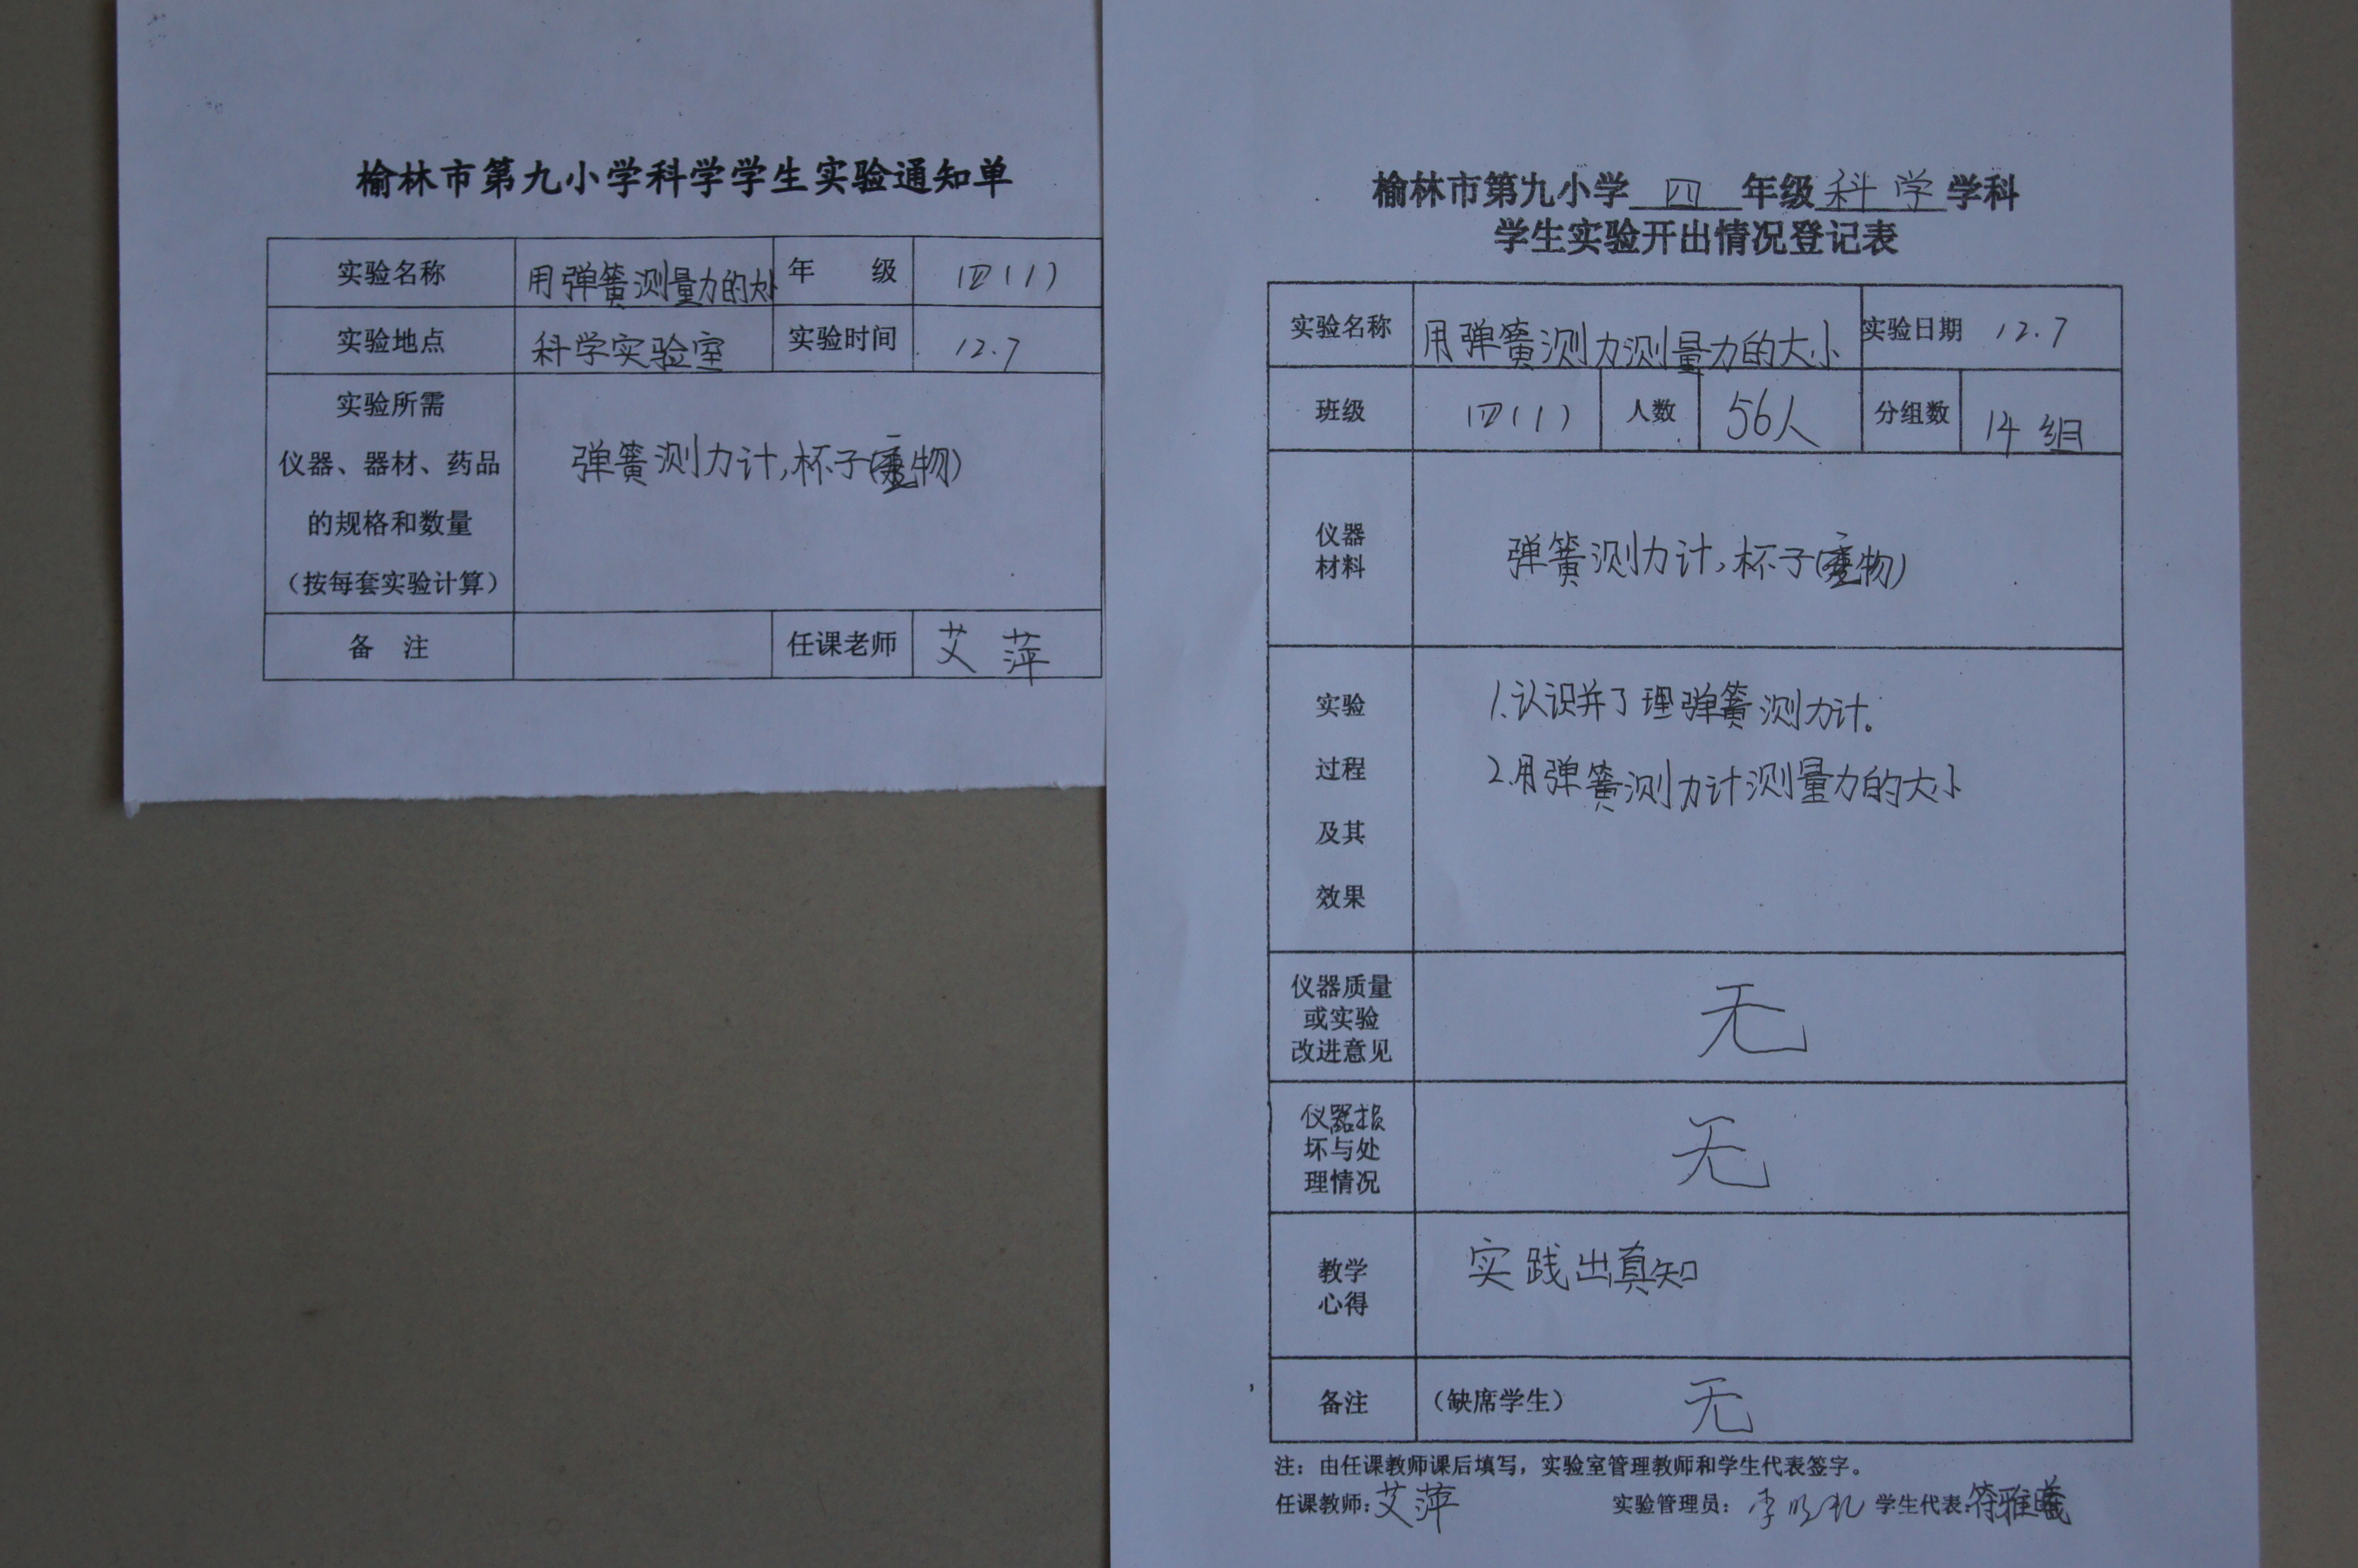 榆林市第九小学科学学生实验通知单
实验名称 用弹簧测量力的大小 年 级 四(1)
实验地点 科学实验室 实验时间 12.7
实验所需
仪器、器材、药品
的规格和数量
(按每套实验计算)
弹簧测力计,杯子(重物)
备 注 任课老师 艾萍
榆林市第九小学 四 年级 科学 学科
学生实验开出情况登记表
实验名称 用弹簧测力测量力的大小 实验日期 12.7
班级 四(1) 人数 56人 分组数 14组
仪器
材料
弹簧测力计,杯子(重物)
实验
过程
及其
效果
1.认识并了理弹簧测力计。
2.用弹簧测力计测量力的大小
仪器质量
或实验
改进意见
无
仪器损
坏与处
理情况
无
教学
心得
实践出真知
备注 (缺席学生) 无
注:由任课教师课后填写,实验室管理教师和学生代表签字。
任课教师:艾萍 实验管理员: 学生代表:符雅曦